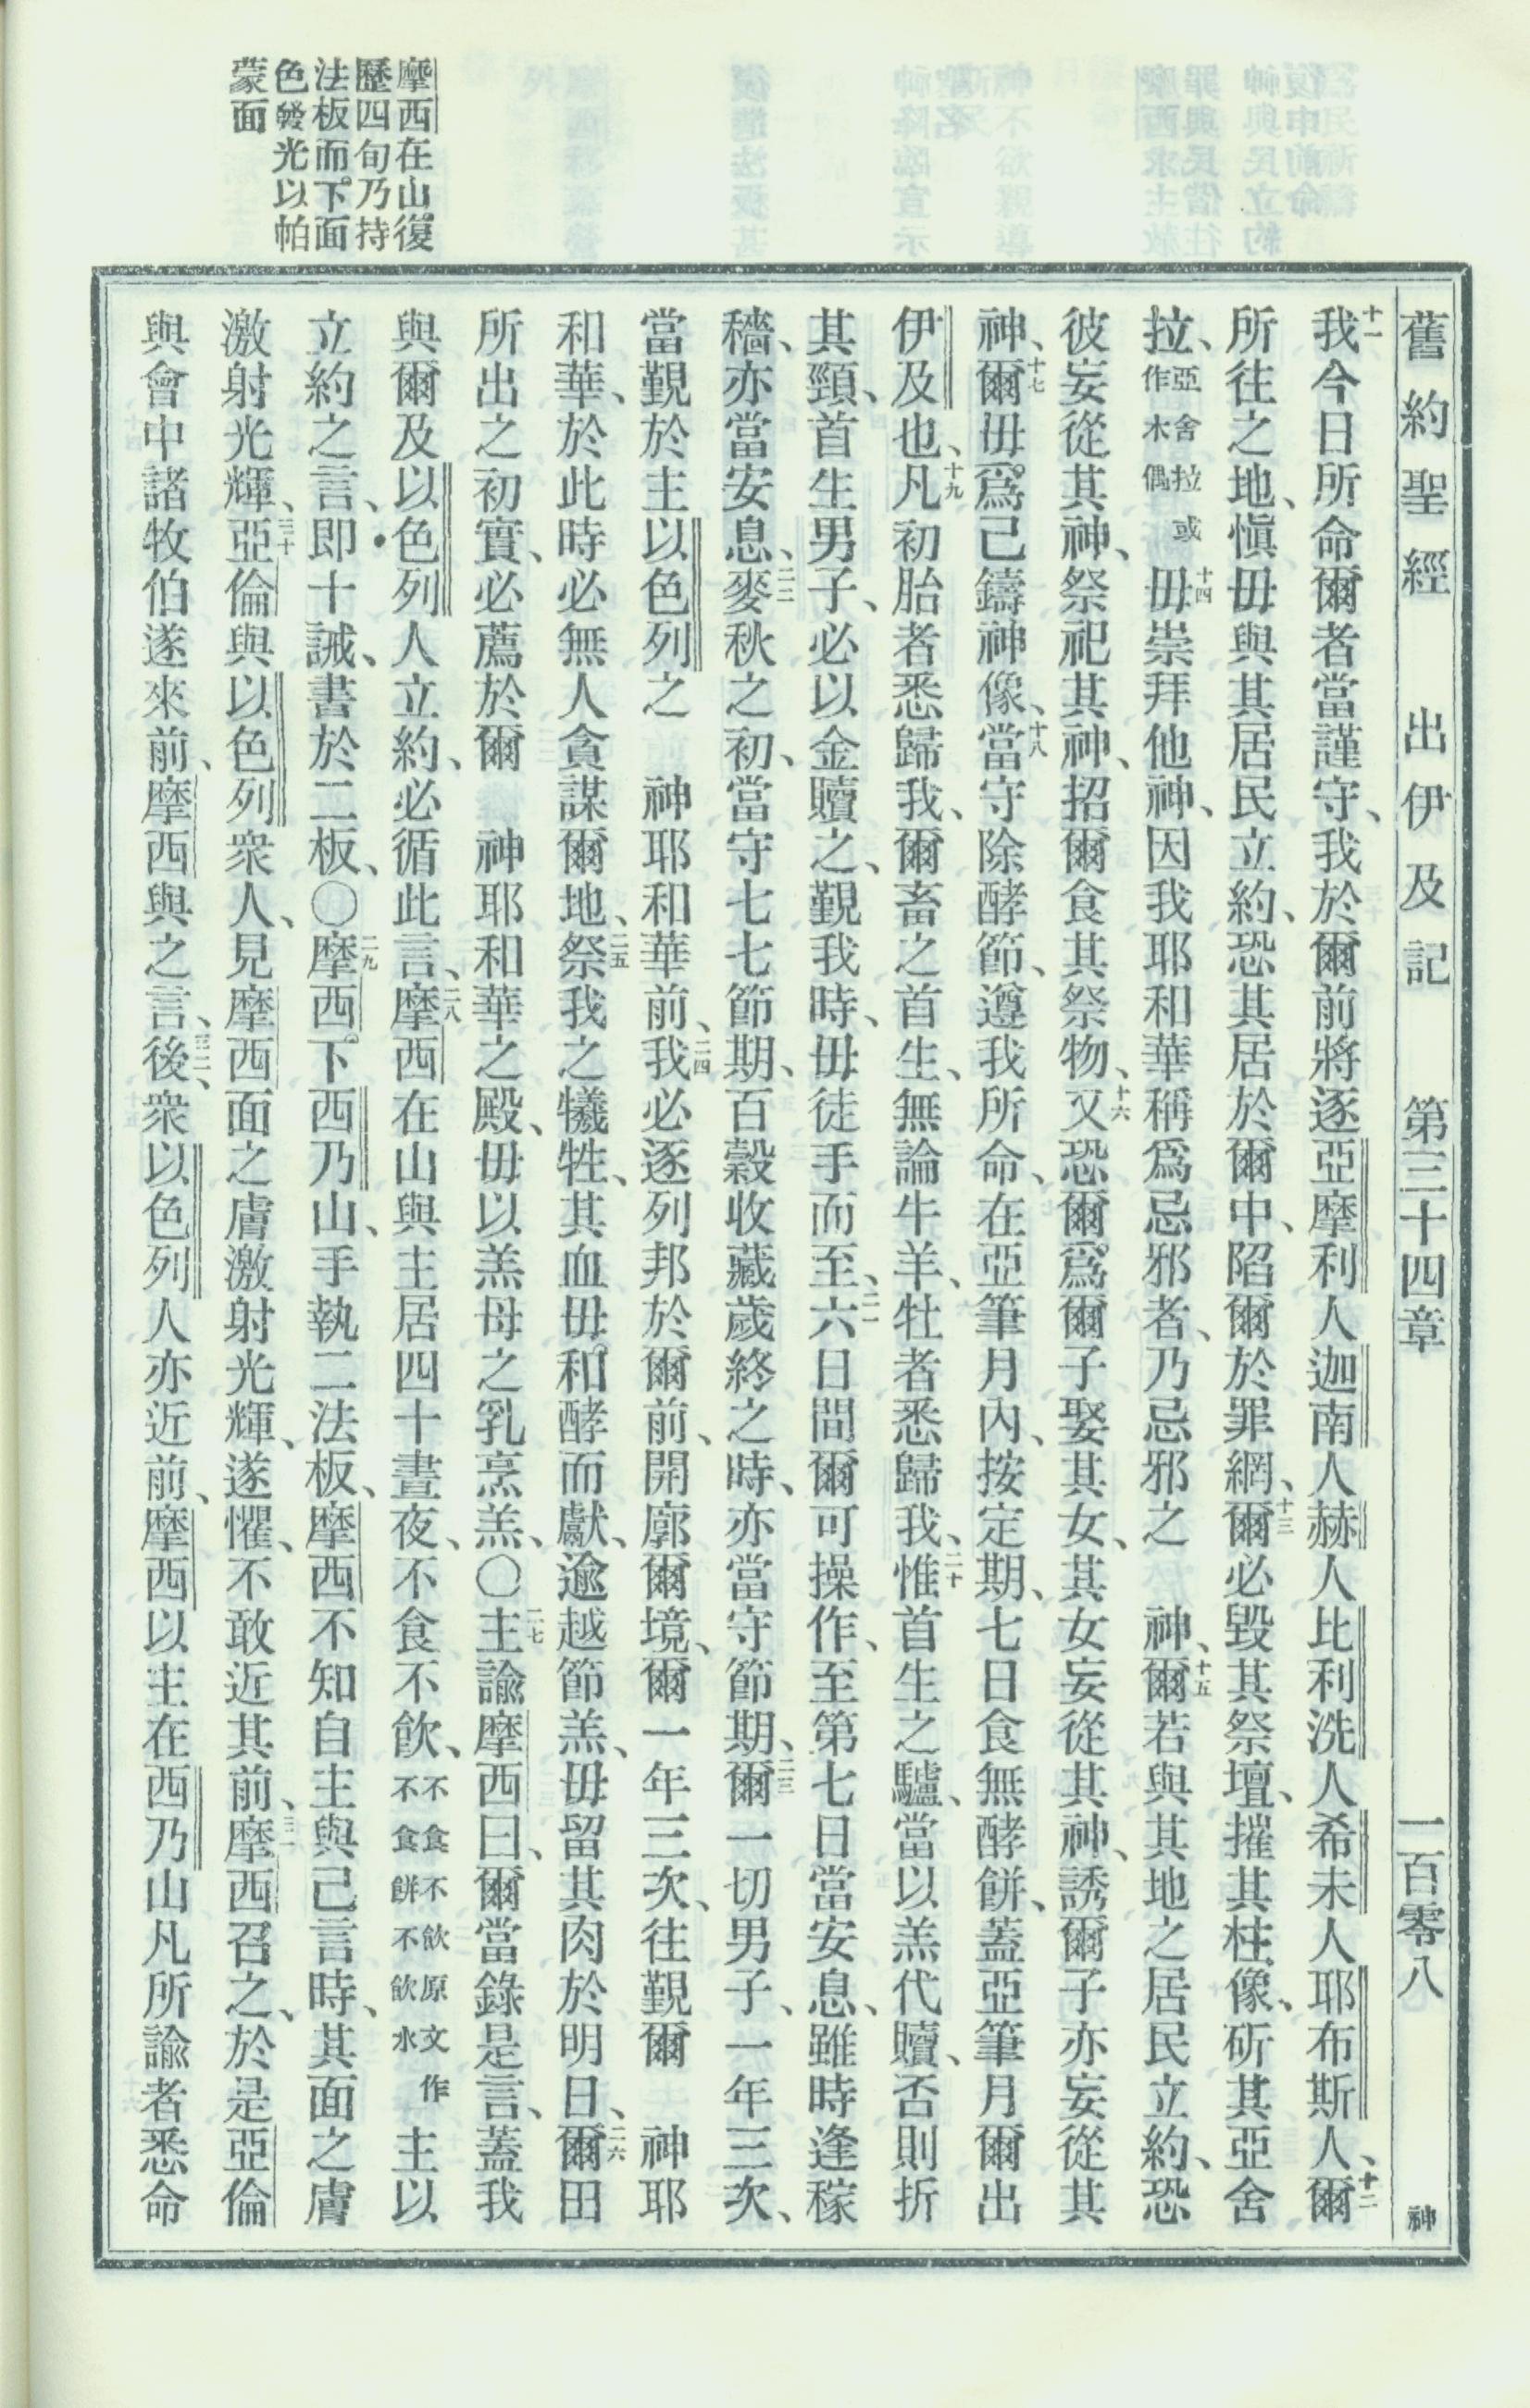 舊約聖經 出伊及記 第三十四章 一百零八 神
十一我今日所命爾者當謹守、我於爾前將逐亞摩利人迦南人赫人比利洗人希未人耶布斯人、十二爾
所往之地、愼毋與其居民立約、恐其居於爾中、陷爾於罪網、十三爾必毀其祭壇、摧其柱像、斫其亞舍
拉、亞舍拉或作木偶十四毋崇拜他神、因我耶和華稱爲忌邪者、乃忌邪之 神、十五爾若與其地之居民立約、恐
彼妄從其神、祭祀其神、招爾食其祭物、十六又恐爾爲爾子娶其女、其女妄從其神、誘爾子亦妄從其
神、十七爾毋爲己鑄神像、十八當守除酵節、遵我所命、在亞筆月內、按定期、七日食無酵餅、蓋亞筆月爾出
伊及也、十九凡初胎者悉歸我、爾畜之首生、無論牛羊、牡者悉歸我、二十惟首生之驢、當以羔代贖、否則折
其頸、首生男子、必以金贖之、覲我時、毋徒手而至、二一六日間爾可操作、至第七日當安息、雖時逢稼
穡、亦當安息、二二麥秋之初、當守七七節期、百穀收藏歲終之時、亦當守節期、二三爾一切男子、一年三次、
當覲於主以色列之 神耶和華前、二四我必逐列邦於爾前、開廓爾境、爾一年三次、往覲爾 神耶
和華、於此時必無人貪謀爾地、二五祭我之犧牲、其血毋和酵而獻、逾越節羔、毋留其肉於明日、二六爾田
所出之初實、必薦於爾 神耶和華之殿、毋以羔母之乳烹羔、〇二七主諭摩西曰、爾當錄是言、蓋我
與爾及以色列人立約、必循此言、二八摩西在山與主居四十晝夜、不食不飲、不食不飲原文作不食餅不飲水主以
立約之言、即十誡、書於二板、〇二九摩西下西乃山、手執二法板、摩西不知自主與己言時、其面之膚
激射光輝、三十亞倫與以色列衆人、見摩西面之膚激射光輝、遂懼、不敢近其前、三一摩西召之、於是亞倫
與會中諸牧伯遂來前、摩西與之言、三二後、衆以色列人亦近前、摩西以主在西乃山凡所諭者悉命
摩西在山復
歷四旬乃持
法板而下面
色發光以帕
蒙面